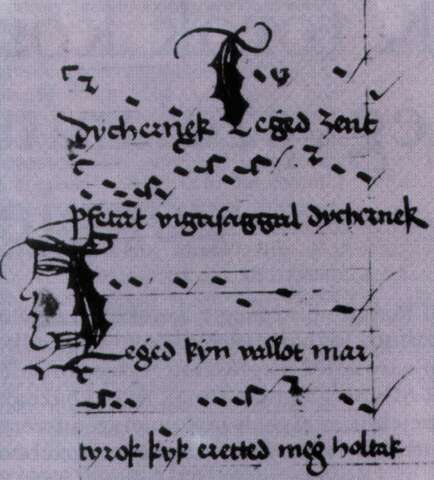 dychernek Teged zent
vigasaggal dychernek
Teged kyn vallot mar
tyrok kyk eretted meg holtak